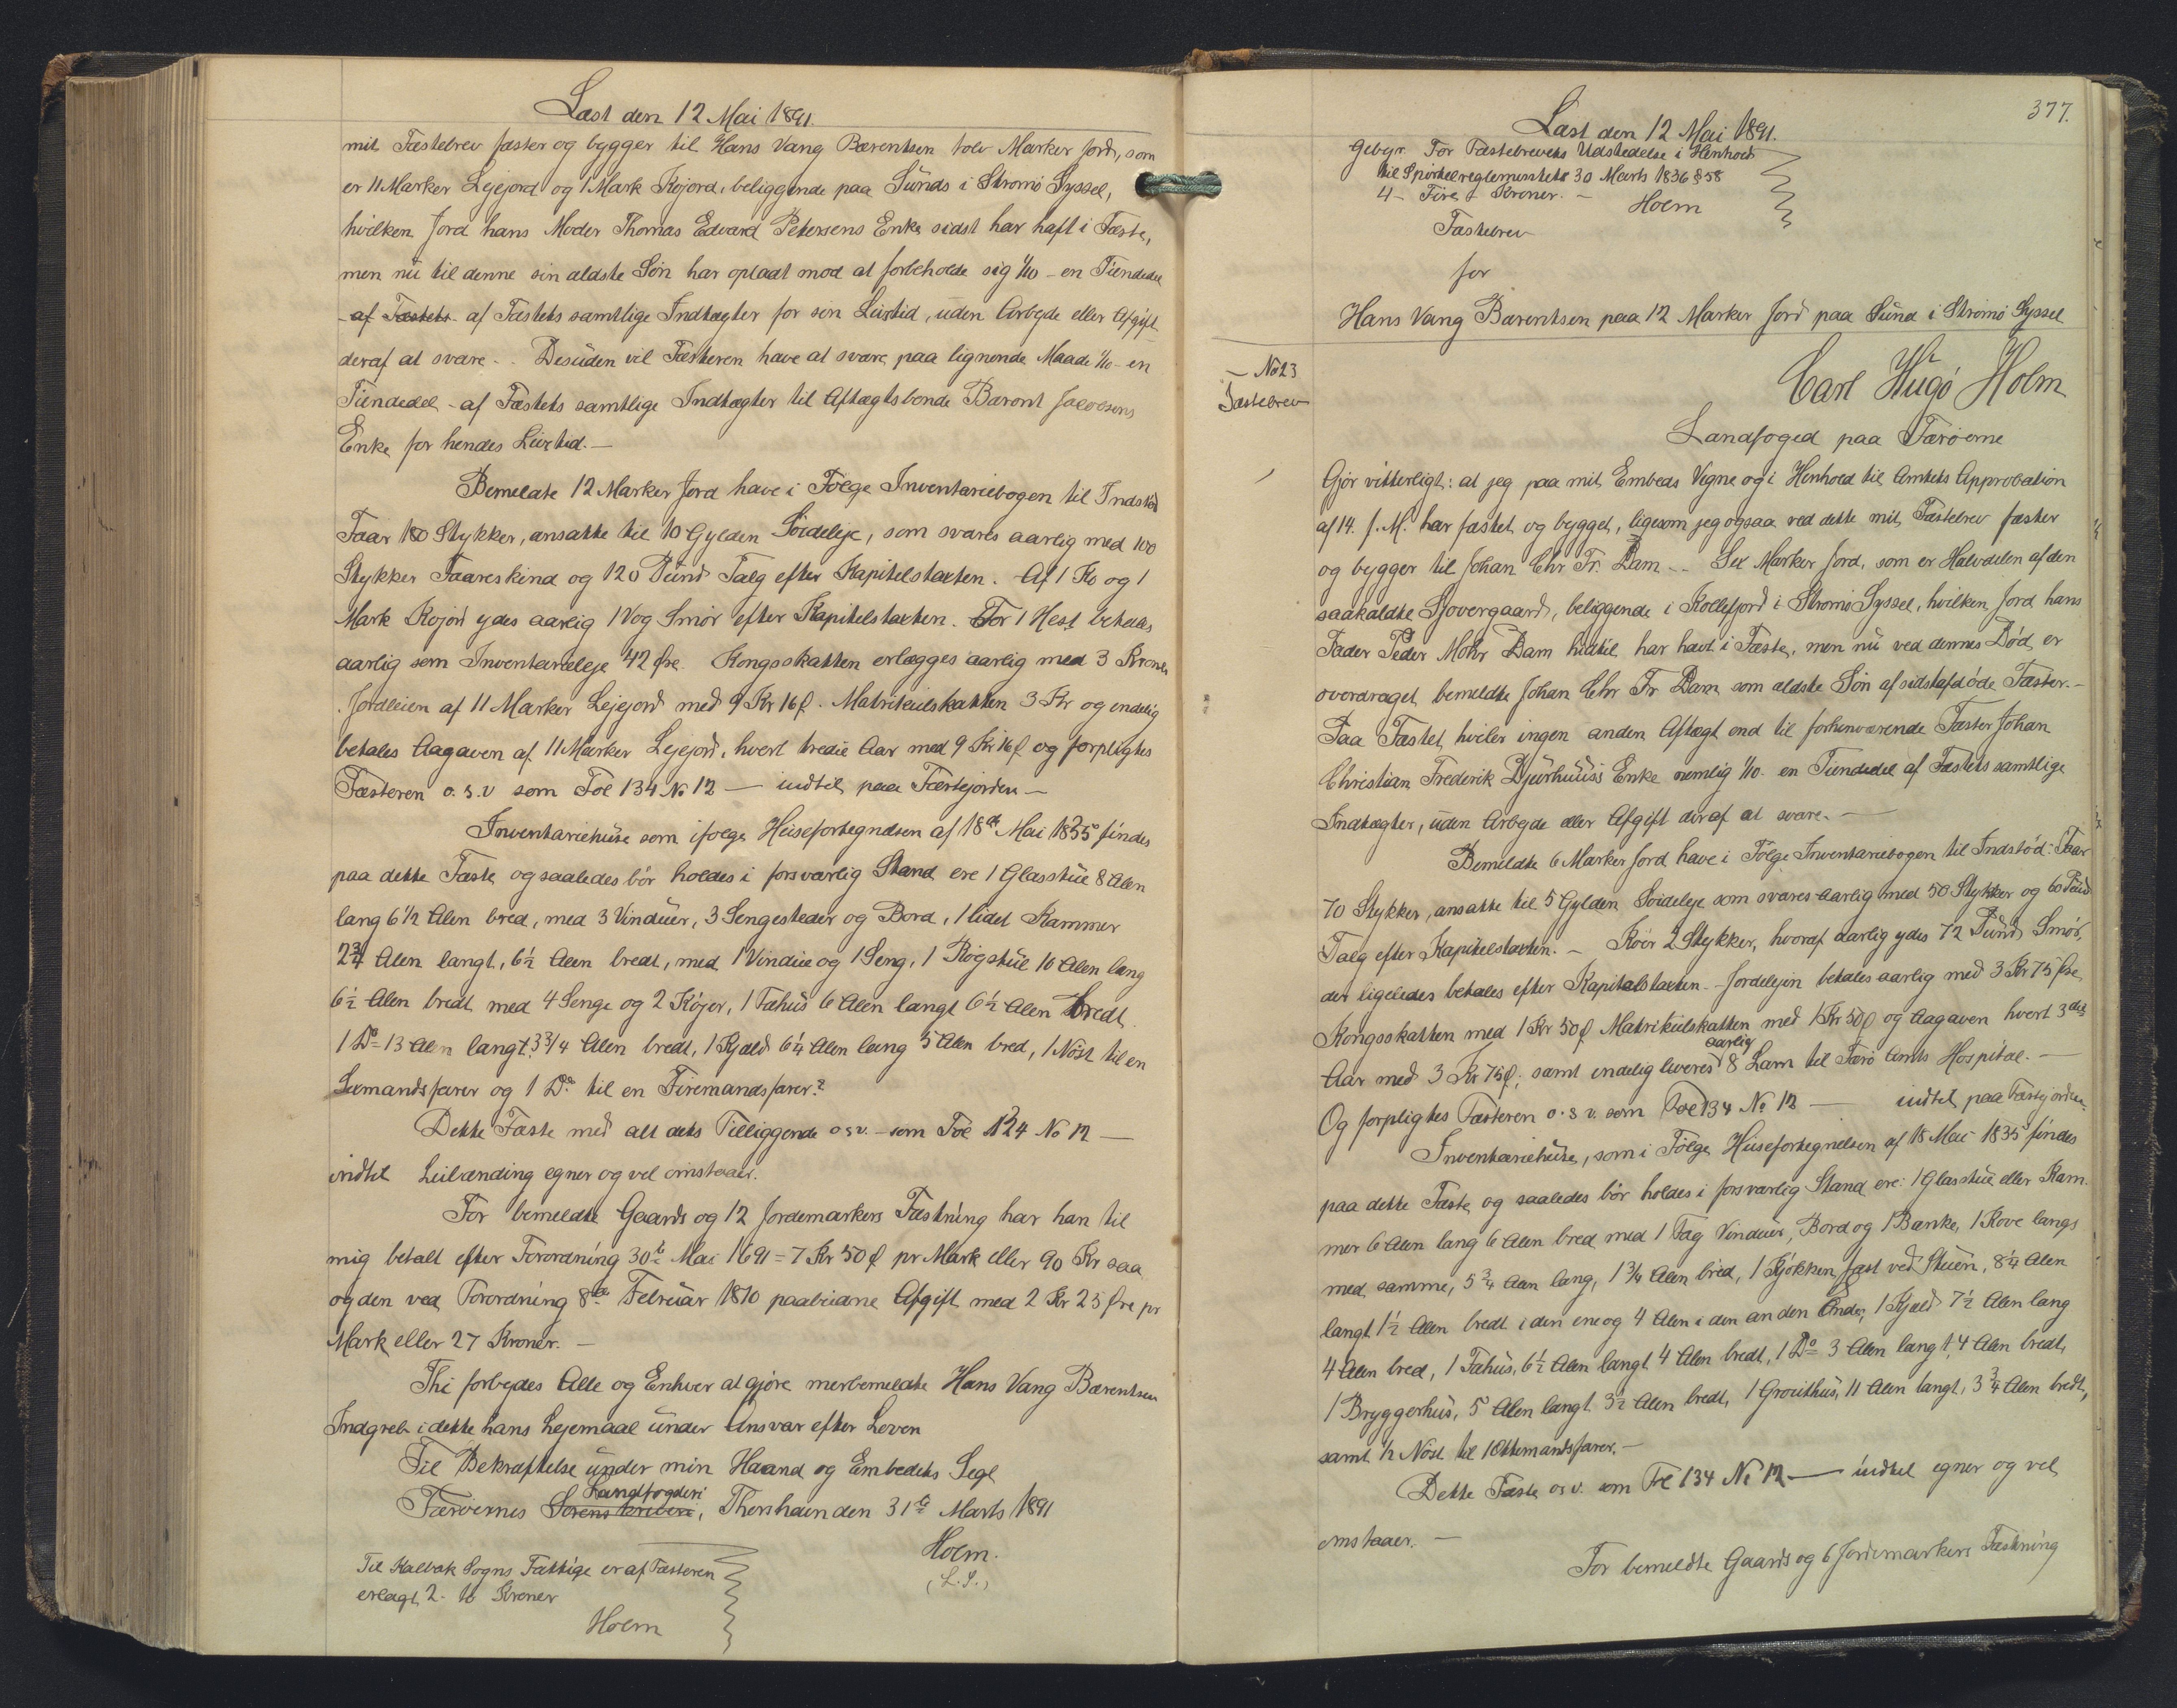 Læst den 12 Mai 1891.
mit Fæstebrev fæster og bygger til Hans Vang Bærentsen tolv Marker Jord, som
er 11 Marker Lejejord og 1 Mark Kojord, beliggende paa Sund i Strømø Syssel,
hvilken Jord hans Moder Thomas Edvard Petersens Enke sidst har haft i Fæste,
men nu til denne sin ældste Søn har opladt mod at forbeholde sig 1/10 - en Tiendedel
af Fæstets af Fæstets samtlige Indtægter for sin Livstid, uden Arbejde eller Afgift
deraf at svare. - Desuden vil Fæsteren have at svare paa lignende Maade 1/10 - en
Tiendedel - af Fæstets samtlige Indtægter til Aftægtsbonde Baront Jacobsens
Enke for hendes Livstid. -
Bemeldte 12 Marker Jord have i Følge Inventariebogen til Indstød
Faar 180 Stykker, ansatte til 10 Gylden Soideleje, som svares aarlig med 100
Stykker Faareskind og 120 Pund Talg efter Kapitelstaxten. Af 1 Ko og 1
Mark Kojord ydes aarlig 1 Vog Smør efter Kapitelstaxten. For 1 Hest betales
aarlig som Inventarieleje 42 Øre. Kongsskatten erlægges aarlig med 3 Kroner
Jordleien af 11 Marker Lejejord med 9 Kr 16 Ø. Matrikulskatten 3 Kr og endelig
betales Aagaven af 11 Marker Lejejord, hvert tredie Aar med 9 Kr 16 Ø og forpligtes
Fæsteren o. s. v som Fol 134 No 12 — indtil paa Fæstejorden —
Inventariehuse som ifølge Husefortegnelsen af 18de Mai 1835 findes
paa dette Fæste og saaledes bør holdes i forsvarlig Stand ere 1 Glasstue 8 Alen
lang 6 1/2 Alen bred, med 3 Vinduer, 3 Sengesteder og Bord, 1 lidet Kammer
2 3/4 Alen langt, 6 1/2 Alen bredt, med 1 Vindue og 1 Seng, 1 Røgstue 10 Alen lang
6 1/2 Alen bredt med 4 Senge og 2 Køjer, 1 Fæhus 6 Alen langt 6 1/2 Alen bredt
1 Do 13 Alen langt 3 3/4 Alen bredt, 1 Kjæld 6 1/4 Alen lang 5 Alen bred, 1 Nøst til en
Sexmandsfarer og 1 Do til en Firemandsfarer.
Dette Fæste med alt dets Tilliggende o s v. - som Fol 124 No 12 —
indtil Leilænding egner og vel omstaaer.
For bemeldte Gaards og 12 Jordemarkers Fæstning har han til
mig betalt efter Forordning 30te Mai 1691 = 7 Kr 50 Ø pr Mark eller 90 Kr saa
og den ved Forordning 8de Februar 1810 paabudne Afgift med 2 Kr 25 Øre pr
Mark eller 27 Kroner. —
Thi forbydes Alle og Enhver at gjøre merbemeldte Hans Vang Bærentsen
Indgreb i dette hans Lejemaal under Ansvar efter Loven
Til Bekræftelse under min Haand og Embedets Segl
Landfogderi
Færøernes Sorenskriveri, Thorshavn den 31te Marts 1891
Holm.
(L. S.)
Til Kalbak Sogns Fattige er af Fæsteren
erlagt 2. to Kroner
Holm
377.
Læst den 12 Mai 1891.
Gebyr For Fæstebrevets Udstedelse i Henhold
til Sportelreglementets 30 Marts 1836 § 58
4 - Fire - Kroner. - Holm
Fæstebrev
for
Hans Vang Bærentsen paa 12 Marker Jord paa Sund i Strømø Syssel
- No 23
Fæstebrev
Carl Hugo Holm
Landfoged paa Færøerne
Gjør vitterligt: at jeg paa mit Embeds Vegne og i Henhold til Amtets Approbation
af 14. f. M. har fæstet og bygget, ligesom jeg ogsaa ved dette mit Fæstebrev fæster
og bygger til Johan Chr Fr. Dam - - Sex Marker Jord, som er Halvdelen af den
saakaldte Sjovergaard, beliggende i Kollefjord i Strømø Syssel, hvilken Jord hans
Fader Peder Mohr Dam hidtil har havt i Fæste, men nu ved dennes Død er
overdraget bemeldte Johan Chr Fr Dam som ældste Søn af sidstafdøde Fæster. -
Paa Fæstet hviler ingen anden Aftægt end til forhenværende Fæster Johan
Christian Frederik Djurhuus's Enke nemlig 1/10 - en Tiendedel af Fæstets samtlige
Indtægter, uden Arbejde eller Afgift deraf at svare. —
Bemeldte 6 Marker Jord have i Følge Inventariebogen til Indstød: Faar
70 Stykker, ansatte til 5 Gylden Soideleje som svares aarlig med 50 Stykker og 60 Pund
Talg efter Kapitelstaxten. - Køer 2 Stykker, hvoraf aarlig ydes 72 Pund Smør,
der ligeledes betales efter Kapitalstaxten - Jordelejen betales aarlig med 3 Kr 75 Øre
Kongsskatten med 1 Kr 50 Ø Matrikulskatten med 1 Kr 50 Ø og Aagaven hvert 3die
aarlig
Aar med 3 Kr 75 Ø, samt endelig leveres 8 Lam til Færø Amts Hospital. —
Og forpligtes Fæsteren o. s v. som Fol 134 No 12 — indtil paa Fæstejorden.
Inventariehuse, som i Følge Husefortegnelsen af 18 Mai 1835 findes
paa dette Fæste og saaledes bør holdes i forsvarlig Stand ere: 1 Glasstue eller Kam-
mer 6 Alen lang 6 Alen bred med 1 Fag Vinduer, Bord og 1 Bænke, 1 Kove langs
med samme, 5 3/4 Alen lang, 1 3/4 Alen bred, 1 Kjøkken fast ved Stuen, 8 1/4 Alen
langt 1 1/2 Alen bredt i den ene og 4 Alen i den anden Ende, 1 Kjæld 7 1/2 Alen lang
4 Alen bred, 1 Fæhus, 6 1/2 Alen langt 4 Alen bredt, 1 Do 3 Alen langt, 4 Alen bredt,
1 Bryggerhus, 5 Alen langt 3 1/2 Alen bredt, 1 Grouthus, 11 Alen langt, 3 3/4 Alen bredt,
samt 1/2 Nøst til 1 Ottemandsfarer. -
Dette Fæste o s v. som Fol 134 No 12 — indtil egner og vel
omstaaer. —
For bemeldte Gaards og 6 Jordemarkers Fæstning